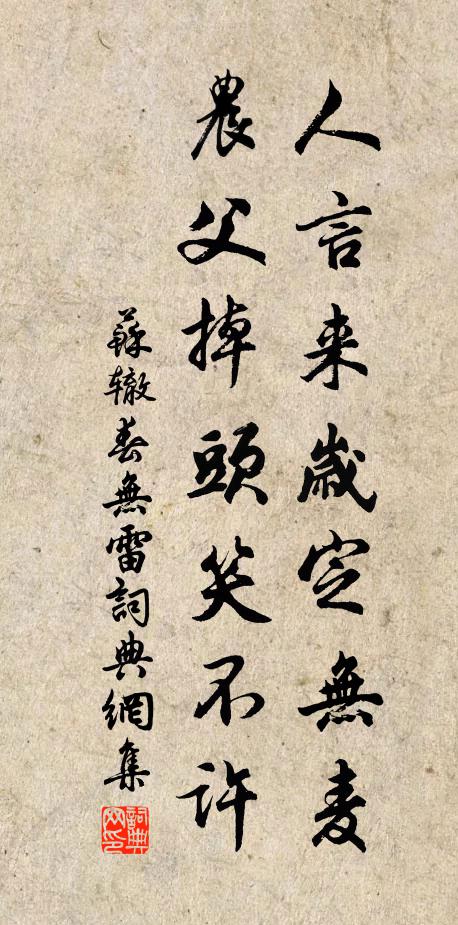 人言来歲定無麦
農父掉頭笑不許
蘇辙春無雷詞典網集
詞典网印